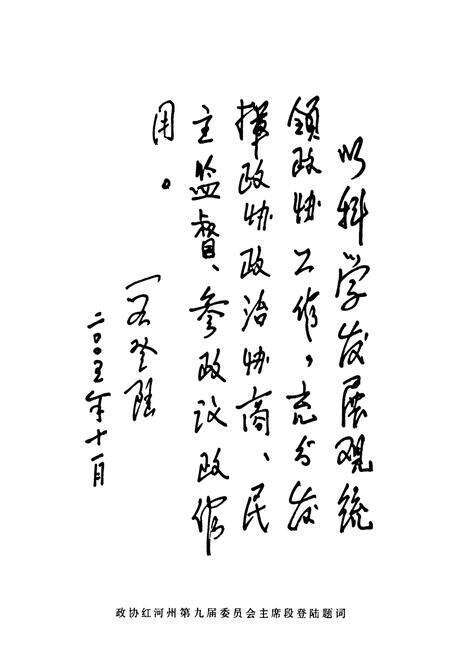 以科学发展观统
領政协工作,充分发
揮政协政治协商、民
主监督、参政议政作
用。
段登陆
二〇〇五年十一月
政协红河州第九届委员会主席段登陆题词